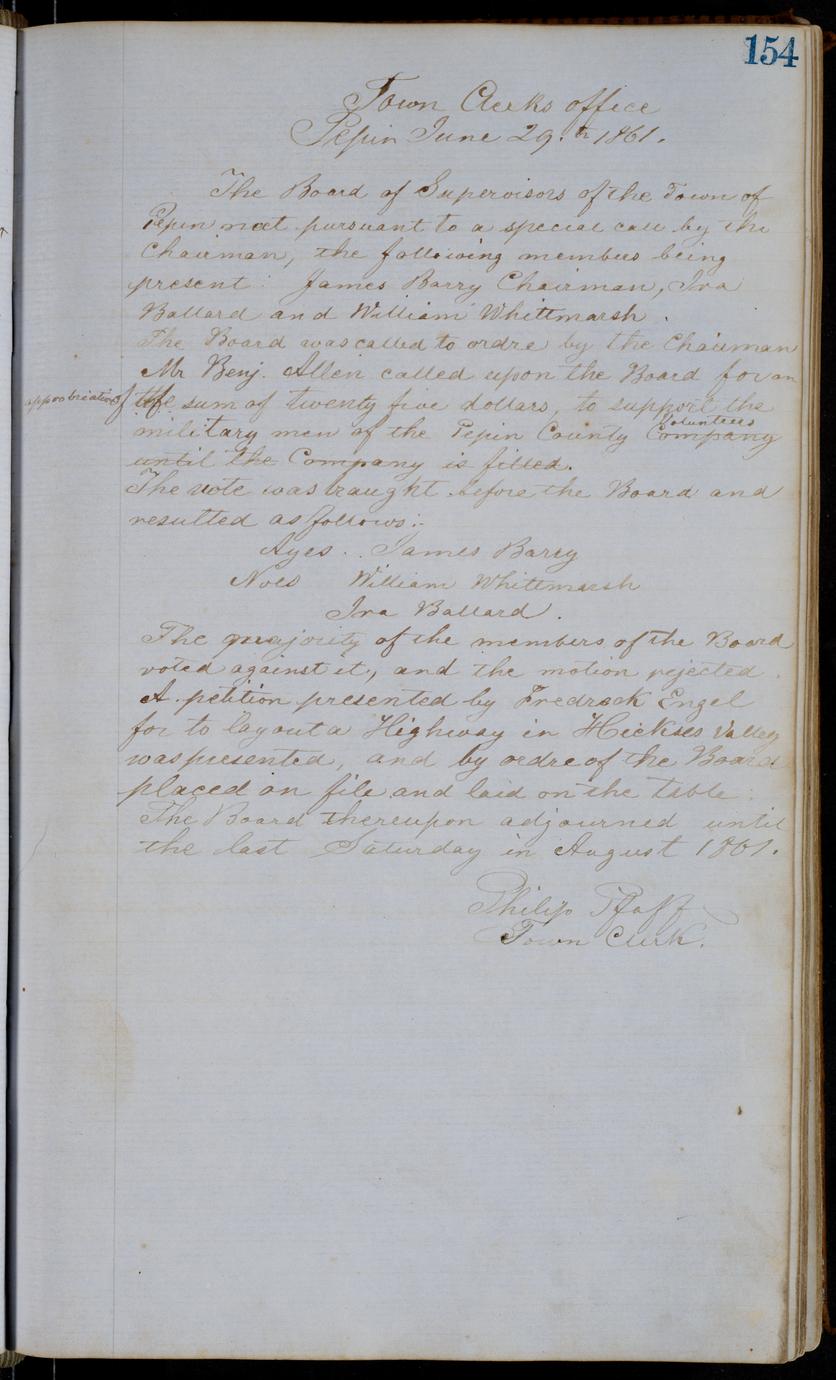 154
Town Clerks office
Pepin June 29.th 1861.
The Board of Supervisors of the Town of
Pepin met pursuant to a special call by the
Chairman, the following members being
present: James Barry Chairman, Ira
Ballard and William Whittmarsh.
The Board was called to ordre by the Chairman
Mr Benj. Allen called upon the Board for an
approbriation of the sum of twenty five dollars, to support the
military men of the Pepin County Volunteers Company
until the Company is filled.
The vote was braught before the Board and
resulted as follows:-
Ayes .. James Barry
Noes William Whittmarsh
Ira Ballard.
The majority of the members of the Board
voted against it, and the motion rejected.
A petition presented by Fredreck Engel
for to lay out a Highway in Hickses Valley
was presented, and by ordre of the Board
placed on file and laid on the table.
The Board thereupon adjourned until
the last Saturday in August 1861.
Philip Pfaff
Town Clerk.